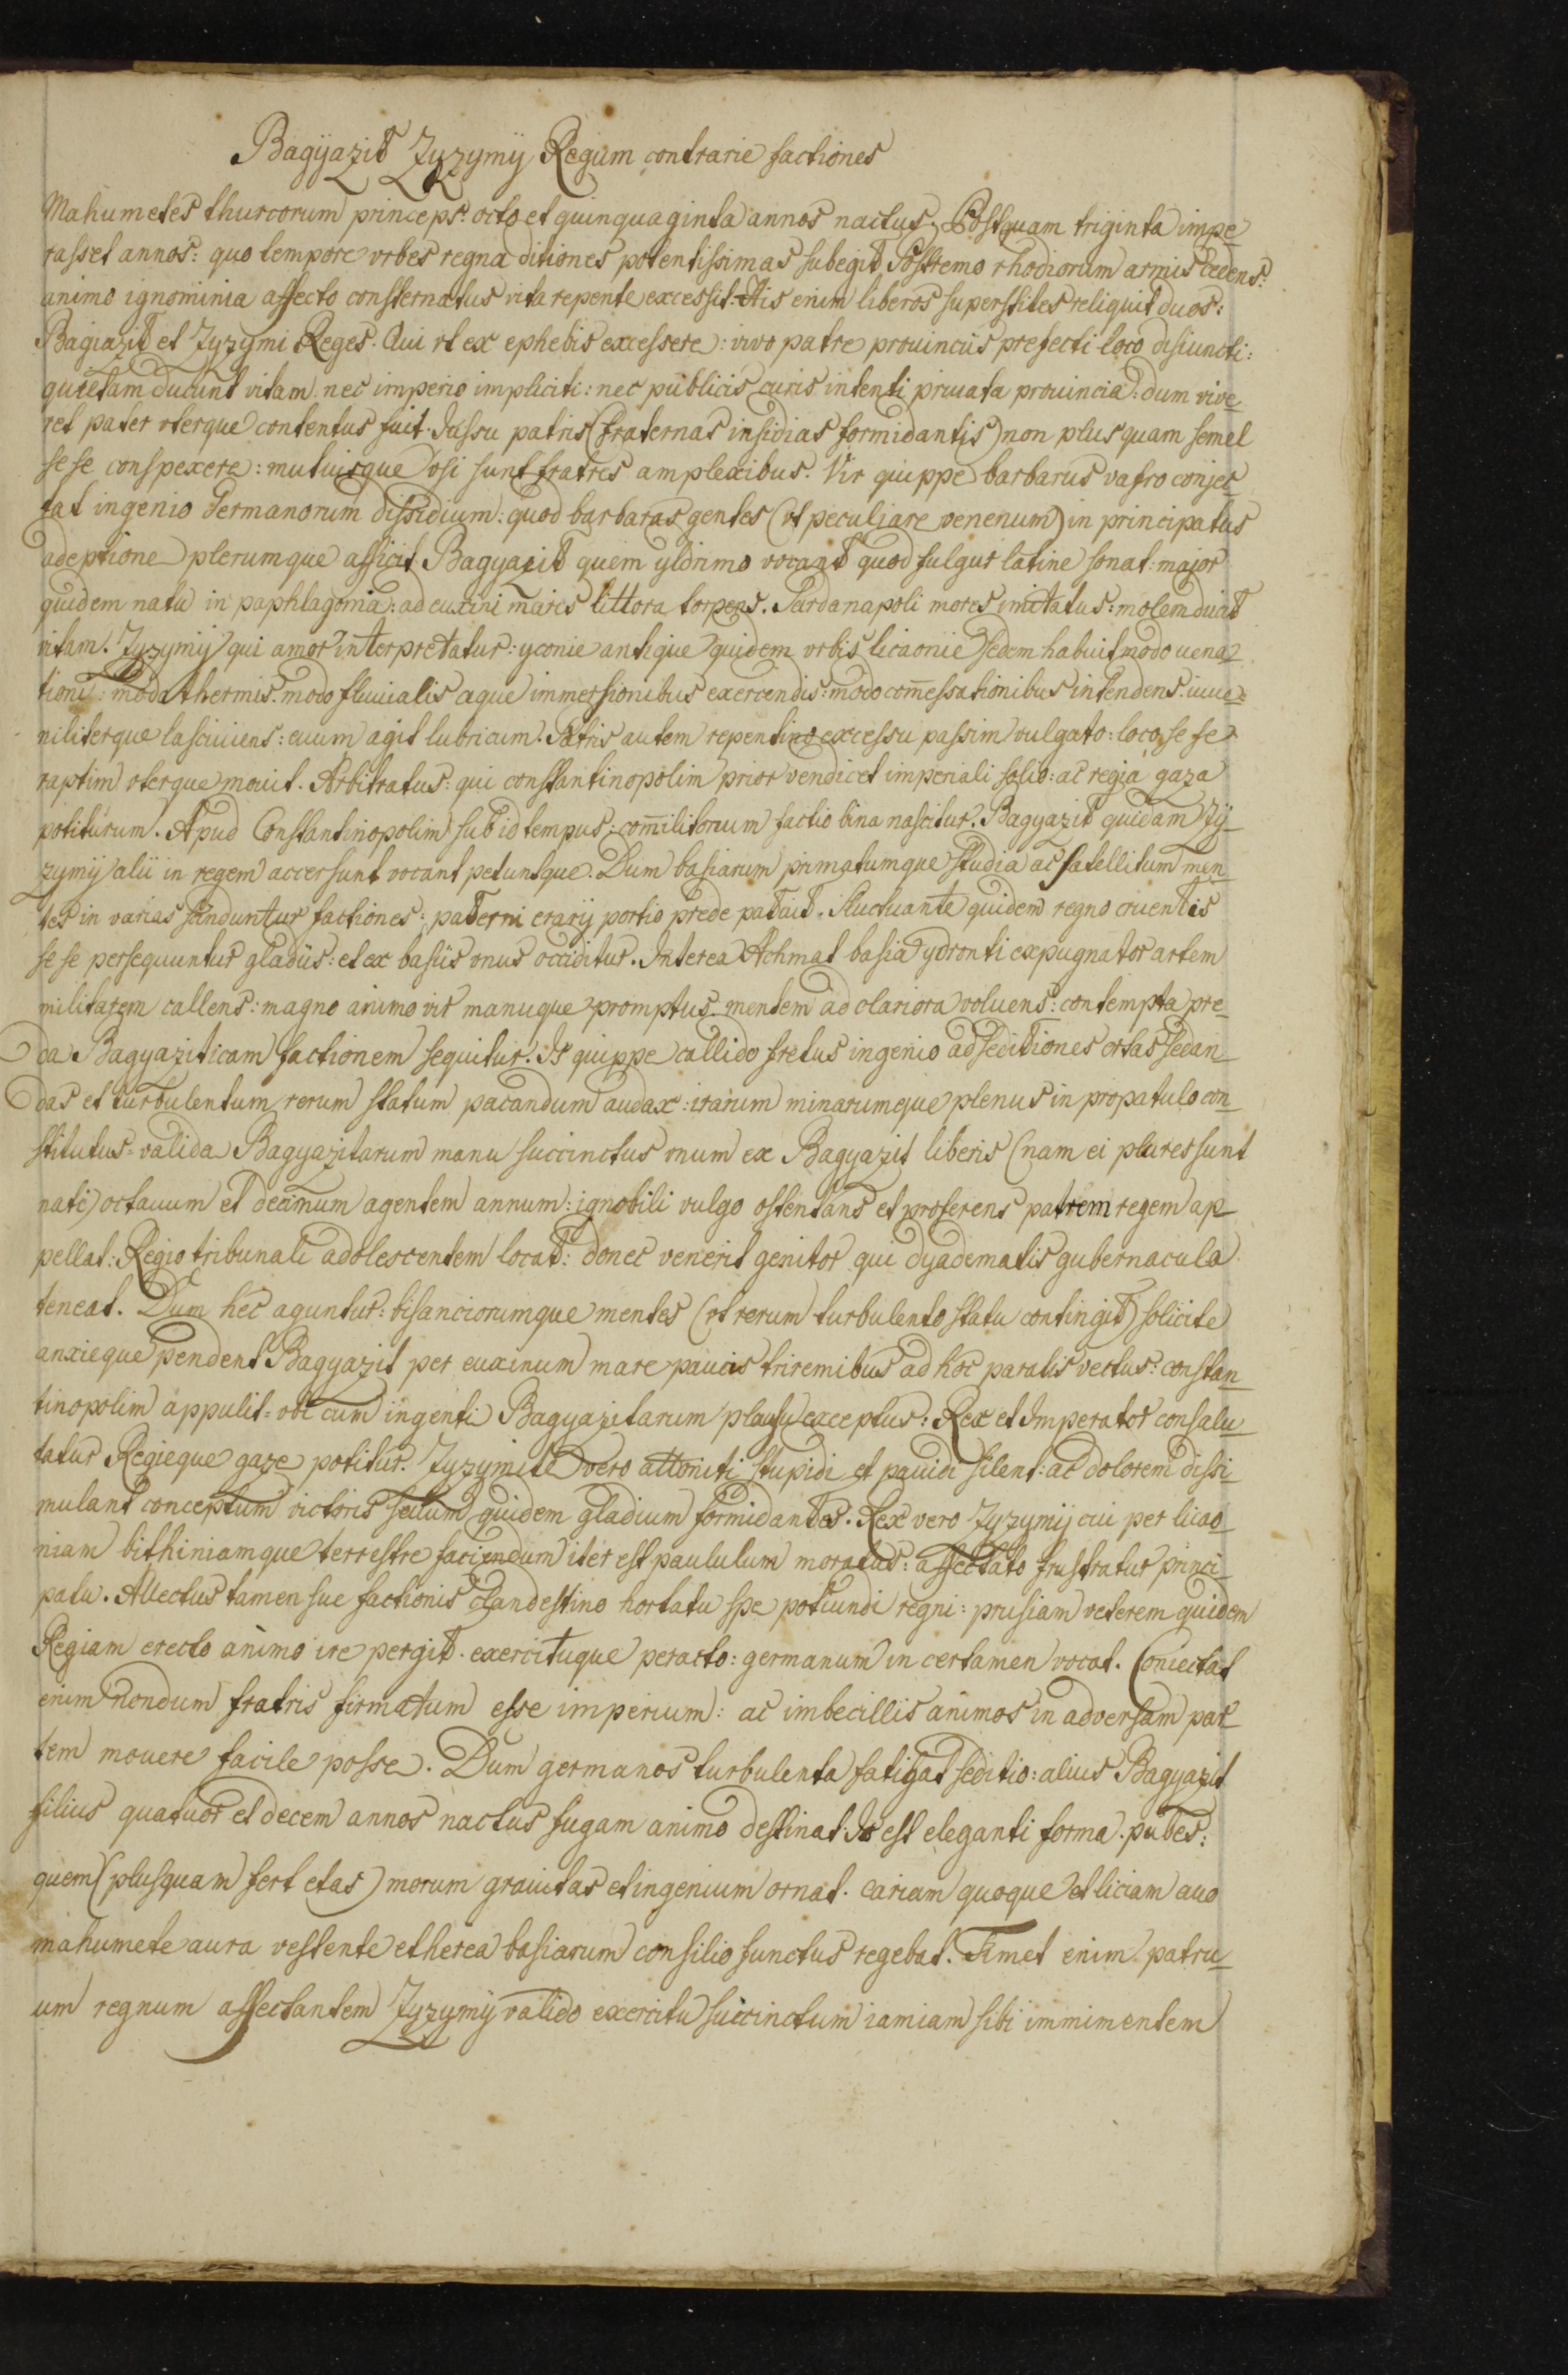 Bagÿazit Zyzymÿ Regum contrarie factiones
Mahumetes thurcorum princeps: octo et quinquaginta annos nactus. Postquam triginta impe_
rasset annos: quo tempore vrbes regna ditiones potentissimas subegit Postremo rhodiorum armis cedens:
animo ignominia affecto consternatus vita repente excessit. His enim liberos superstites reliquit duos:
Bagiazit et Zyzymi Reges. Qui vt ex ephebis excessere: vivo patre prouinciis prefecti loco disiuncti:
quietam ducunt vitam nec imperio impliciti: nec publicis curis intenti priuata prouincia: dum vive_
ret pater vterque contentus fuit. Iussu patris (fraternas insidias formidantis) non plus quam semel
se se conspexere: mutuisque vsi sunt fratres amplexibus. Vir quippe barbarus vafro conjec_
tat ingenio Germanorum dissidium: quod barbaras gentes (vt peculiare venenum) in principatus
adeptione plerumque afficit. Bagyazit quem yldrimo vocant quod fulgur latine sonat: major
quidem natu in paphlagonia: ad euxini maris littora torpens. Sardanapoli mores imitatus: molem ducit
vitam. Zyzymÿ qui amor interpretatur: yconie antique quidem vrbis licaonie sedem habuit modo uena_
tioni: modo thermis: modo fluuialis aque immersionibus exercendis: modo com̄essationibus intendens. iuue=
niliterque lasciuiens: euum agit lubricum. Patris autem repentino excessu passim vulgato: loco se se
raptim vterque mouit. Arbitratus: qui constantinopolim prior vendicet imperiali solio: ac regia gaza
potiturum. Apud Constantinopolim sub id tempus: com̄ilitonum factio bina nascitur. Bagyazit quidam Zy_
zymÿ alii in regem accersunt vocant petuntque. Dum basiarum primatumque studia ac satellitum men_
tes in varias scinduntur factiones: paterni erarÿ portio prede patuit. Fluctuante quidem regno cruentis
se se persequuntur gladiis: et ex basiis vnus occiditur. Interea Achmat basia ydronti expugnator artem
militarem callens: magno animo vir manuque promptus. mentem ad clariora voluens: contempta pre_
da Bagyaziticam factionem sequitur. Is quippe callido fretus ingenio ad seditiones ortas sedan_
das et turbulentum rerum statum pacandum audax: irarum minarumque plenus in propatulo con_
stitutus: valida Bagyazitarum manu succinctus vnum ex Bagyazit liberis (nam ei plures sunt
nati) octauum et decimum agentem annum: ignobili vulgo ostentans et proferens patrem regem ap_
pellat: Regio tribunali adolescentem locat: donec venerit genitor qui dyadematis gubernacula
teneat. Dum hec aguntur: bisanciorumque mentes (vt rerum turbulento statu contingit) solicite
anxieque pendent Bagyazit per euxinum mare paucis triremibus ad hoc paratis vectus: constan_
tinopolim appulit: vbi cum ingenti Bagyazitarum plausu exceptus: Rex et Imperator consalu_
tatur Regieque gaze potitur. Zyzymite vero attoniti stupidi et pauidi silent: ac dolorem dissi_
mulant conceptum victoris seuum quidem gladium formidantes. Rex vero Zyzymÿ cui per licao_
niam bithiniamque terrestre faciendum iter est paululum moratus: affectato frustratur princi_
patu. Allectus tamen sue factionis clandestino hortatu spe potiundi regni: prusiam veterem quidem
Regiam erecto animo ire pergit. exercituque peracto: germanum in certamen vocat. Coniectat
enim nondum fratris firmatum esse imperium: ac imbecillis animos in adversam par_
tem mouere facile posse. Dum germanos turbulenta fatigat seditio: alius Bagyazit
filius quatuor et decem annos nactus fugam animo destinat. Is est eleganti forma. pubes:
quem (plusquam fert etas) morum grauitas et ingenium ornat. cariam quoque et liciam auo
mahumete aura vestente etherea basiarum consilio functus regebat. Timet enim patru_
um regnum affectantem Zyzymÿ valido exercitu succinctum iamiam sibi immimentem